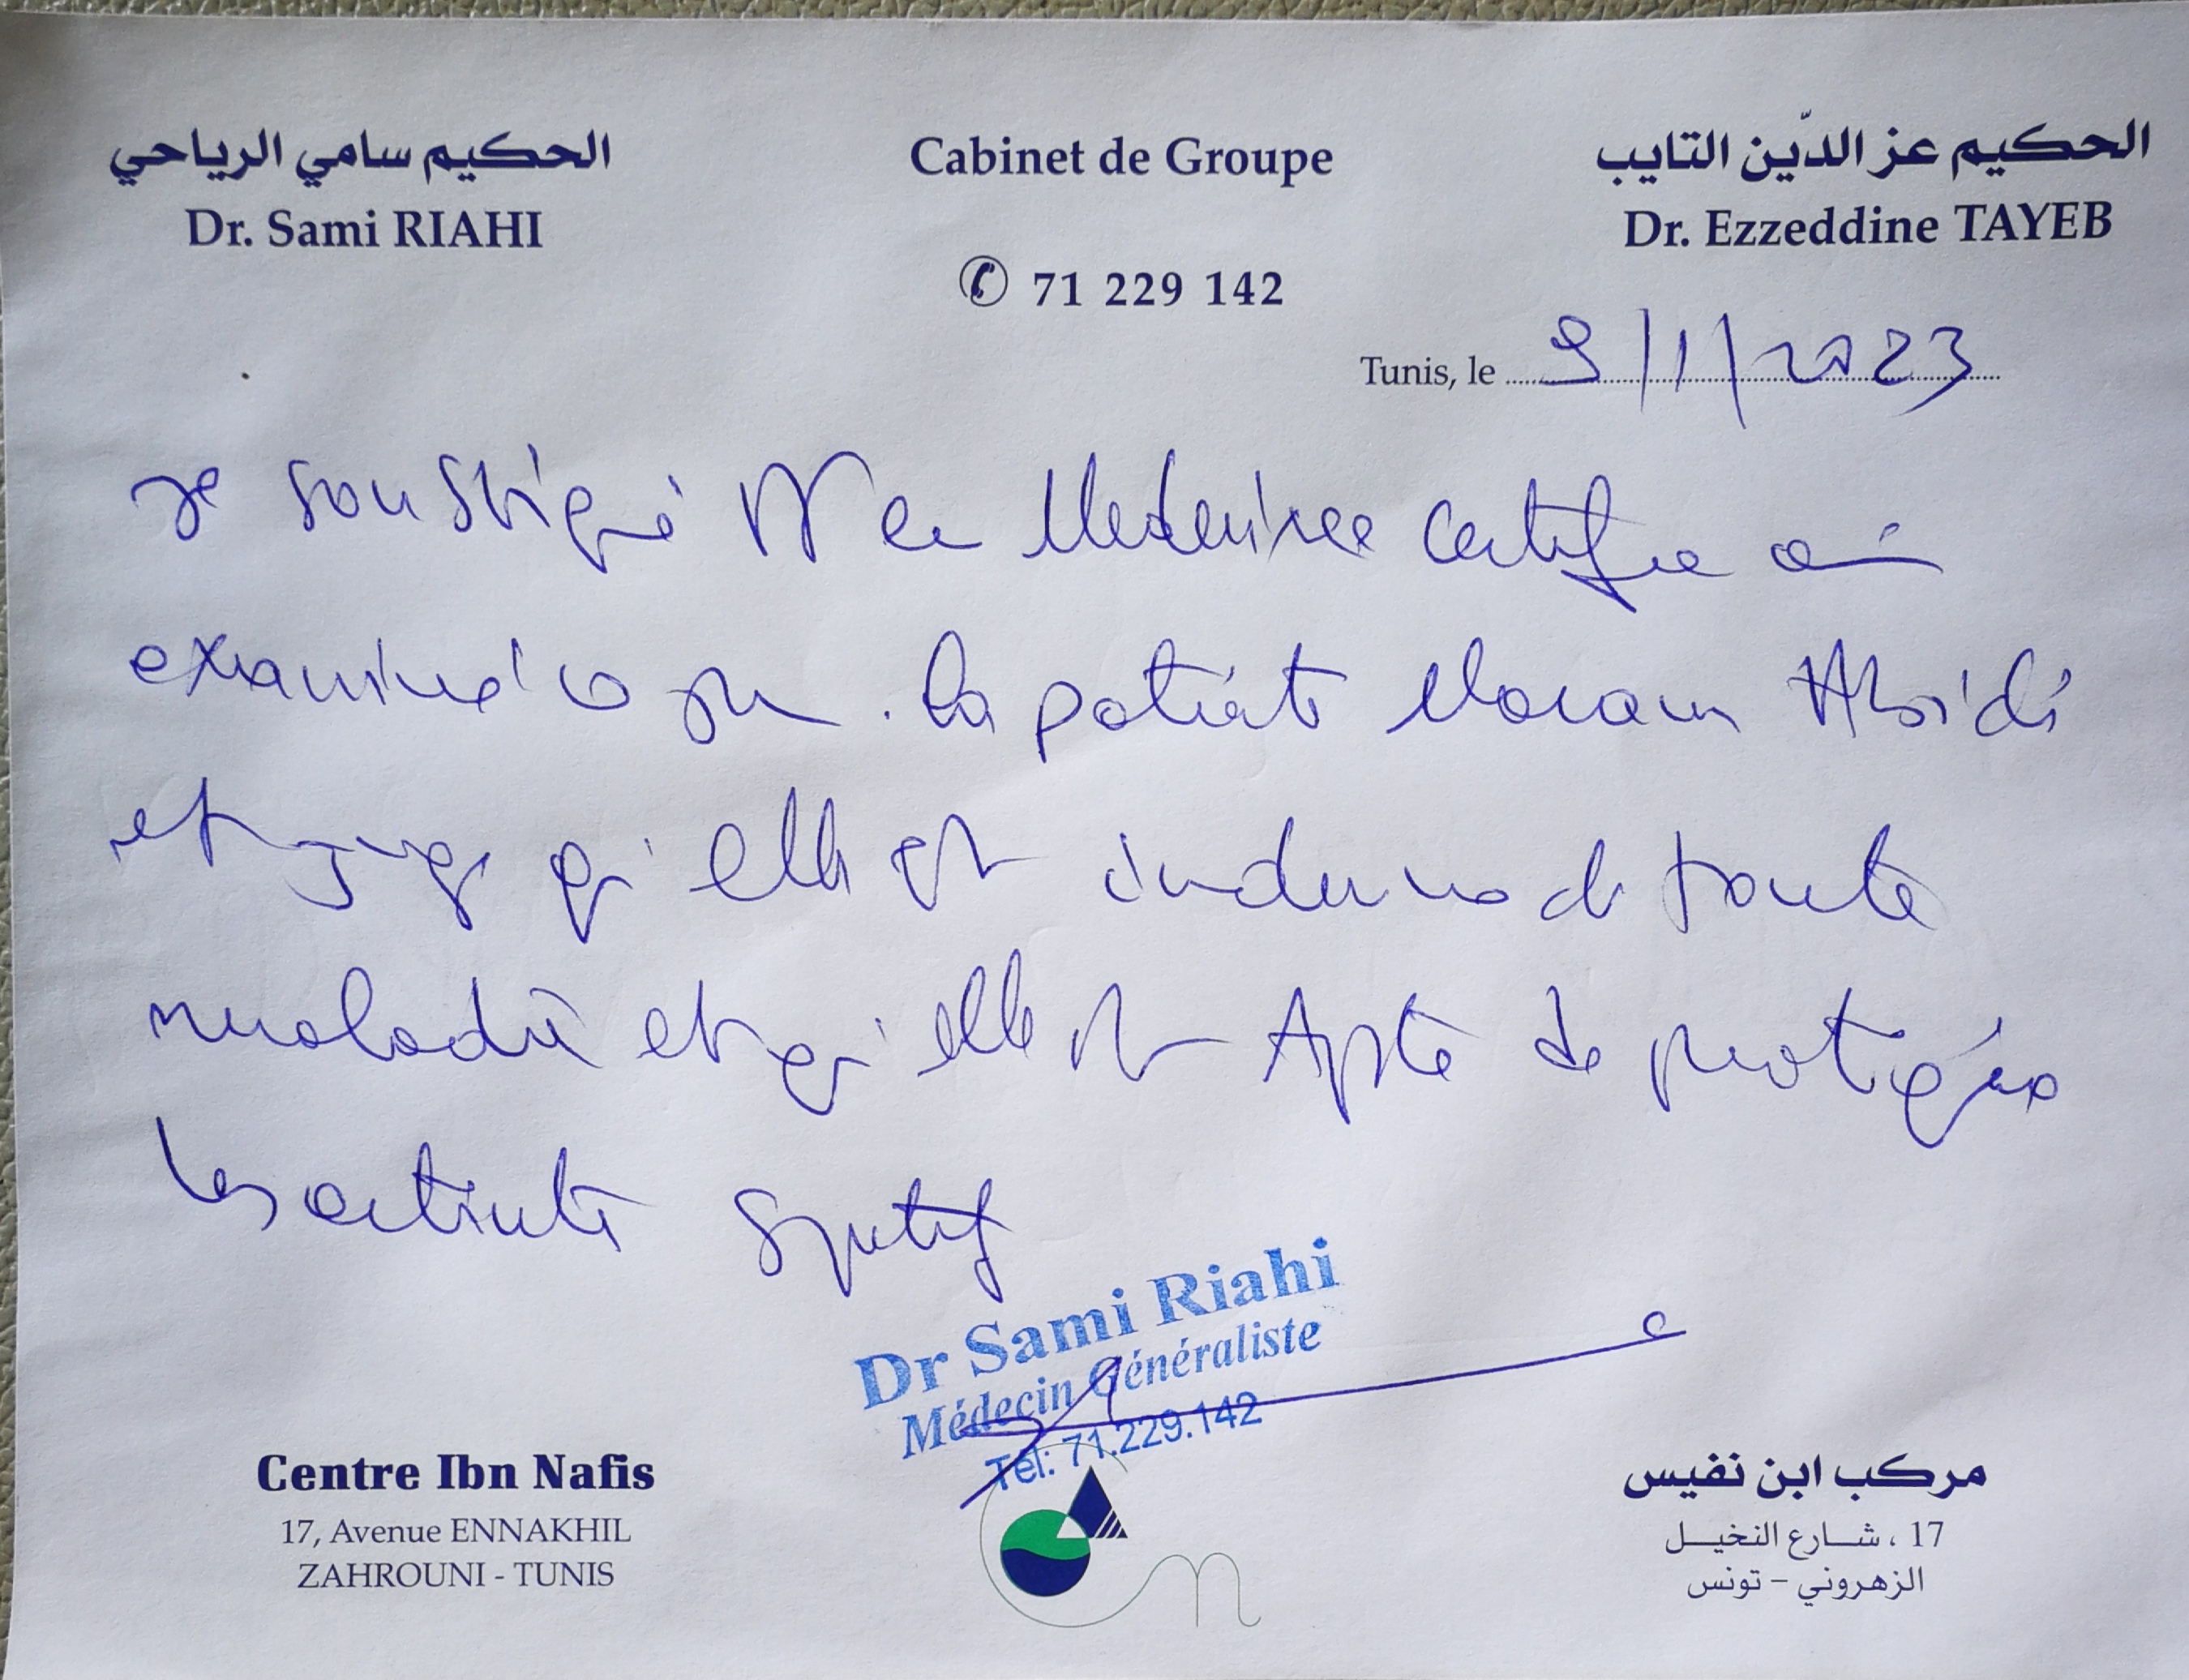 الحكيم سامي الرياحي
Dr. Sami RIAHI
Cabinet de Groupe
71 229 142
الحكيم عز الدّين التايب
Dr. Ezzeddine TAYEB
Tunis, le 9/1/2023
Je soussigné Dr en Medecine certifie avoir
examiné ce jour. la patiente Maram Abidi
et juge qu'elle est indemne de toute
maladie et qu'elle est Apte de pratiquer
les activité sportif
Dr Sami Riahi
Médecin Généraliste
Tél: 71.229.142
Centre Ibn Nafis
17, Avenue ENNAKHIL
ZAHROUNI - TUNIS
مركب ابن نفيس
17 ، شارع النخيل
الزهروني - تونس